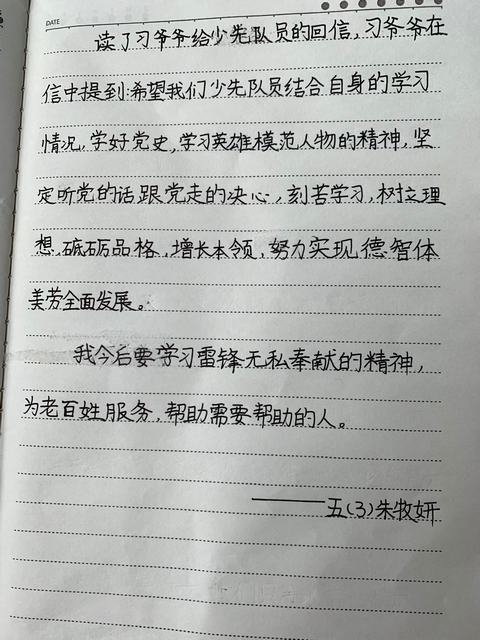 DATE
读了习爷爷给少先队员的回信，习爷爷在
信中提到希望我们少先队员结合自身的学习
情况，学好党史，学习英雄模范人物的精神，坚
定听党的话跟党走的决心，刻苦学习，树立理
想，砥砺品格，增长本领，努力实现德智体
美劳全面发展。
我今后要学习雷锋无私奉献的精神，
为老百姓服务，帮助需要帮助的人。
——五（3）朱牧妍